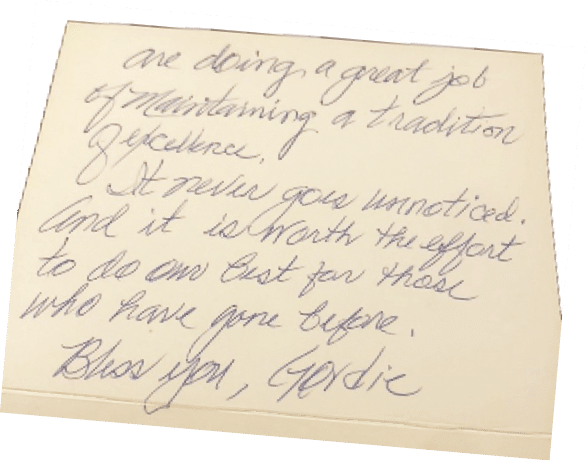 are doing a great job
of maintaining a tradition
of excellence.
It never goes unnoticed.
And it is worth the effort
to do our best for those
who have gone before.
Bless you, Gordie